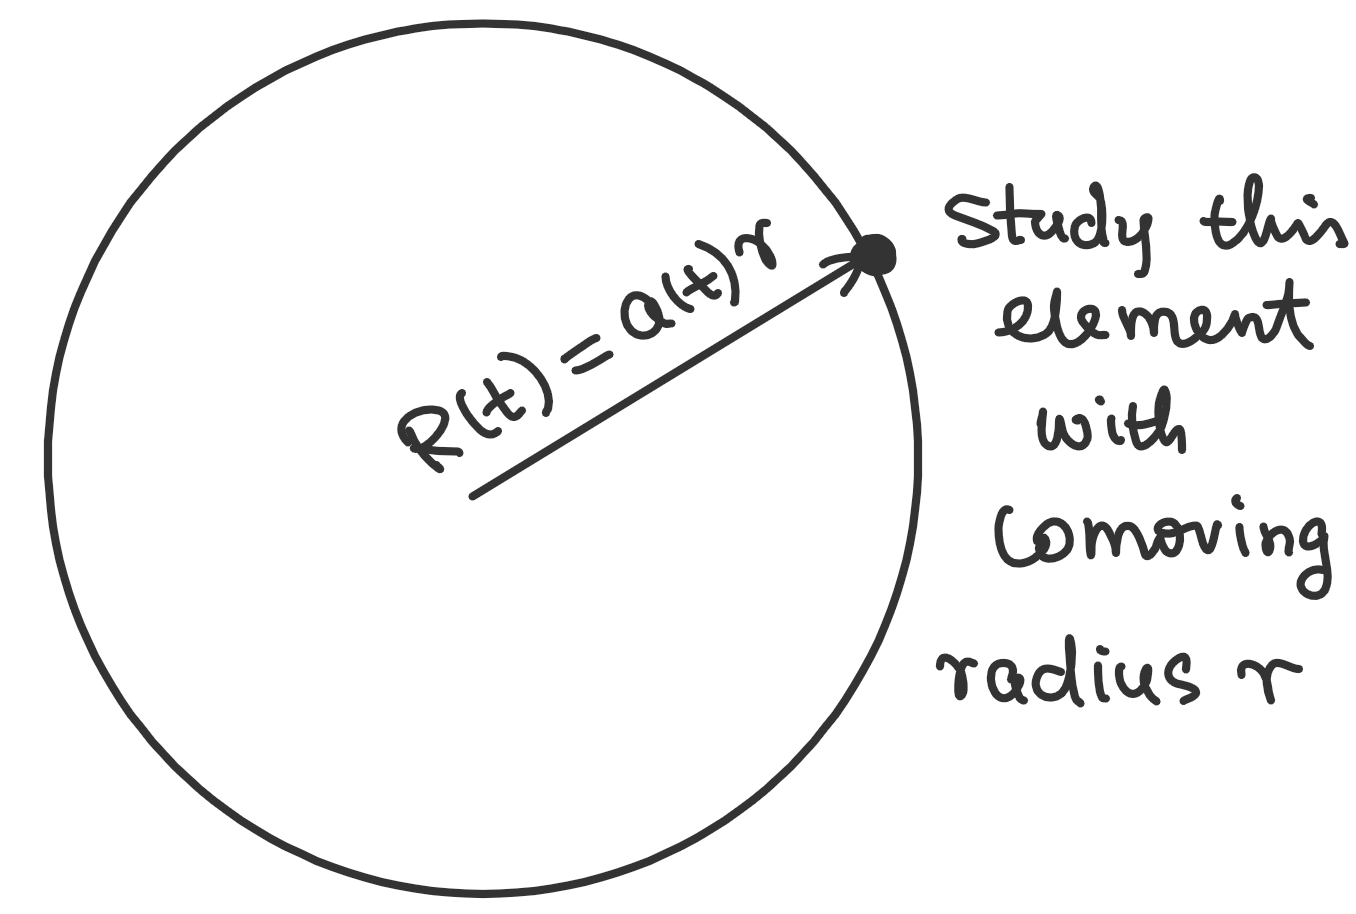 R(t) = a(t)r
Study this
element
with
comoving
radius r